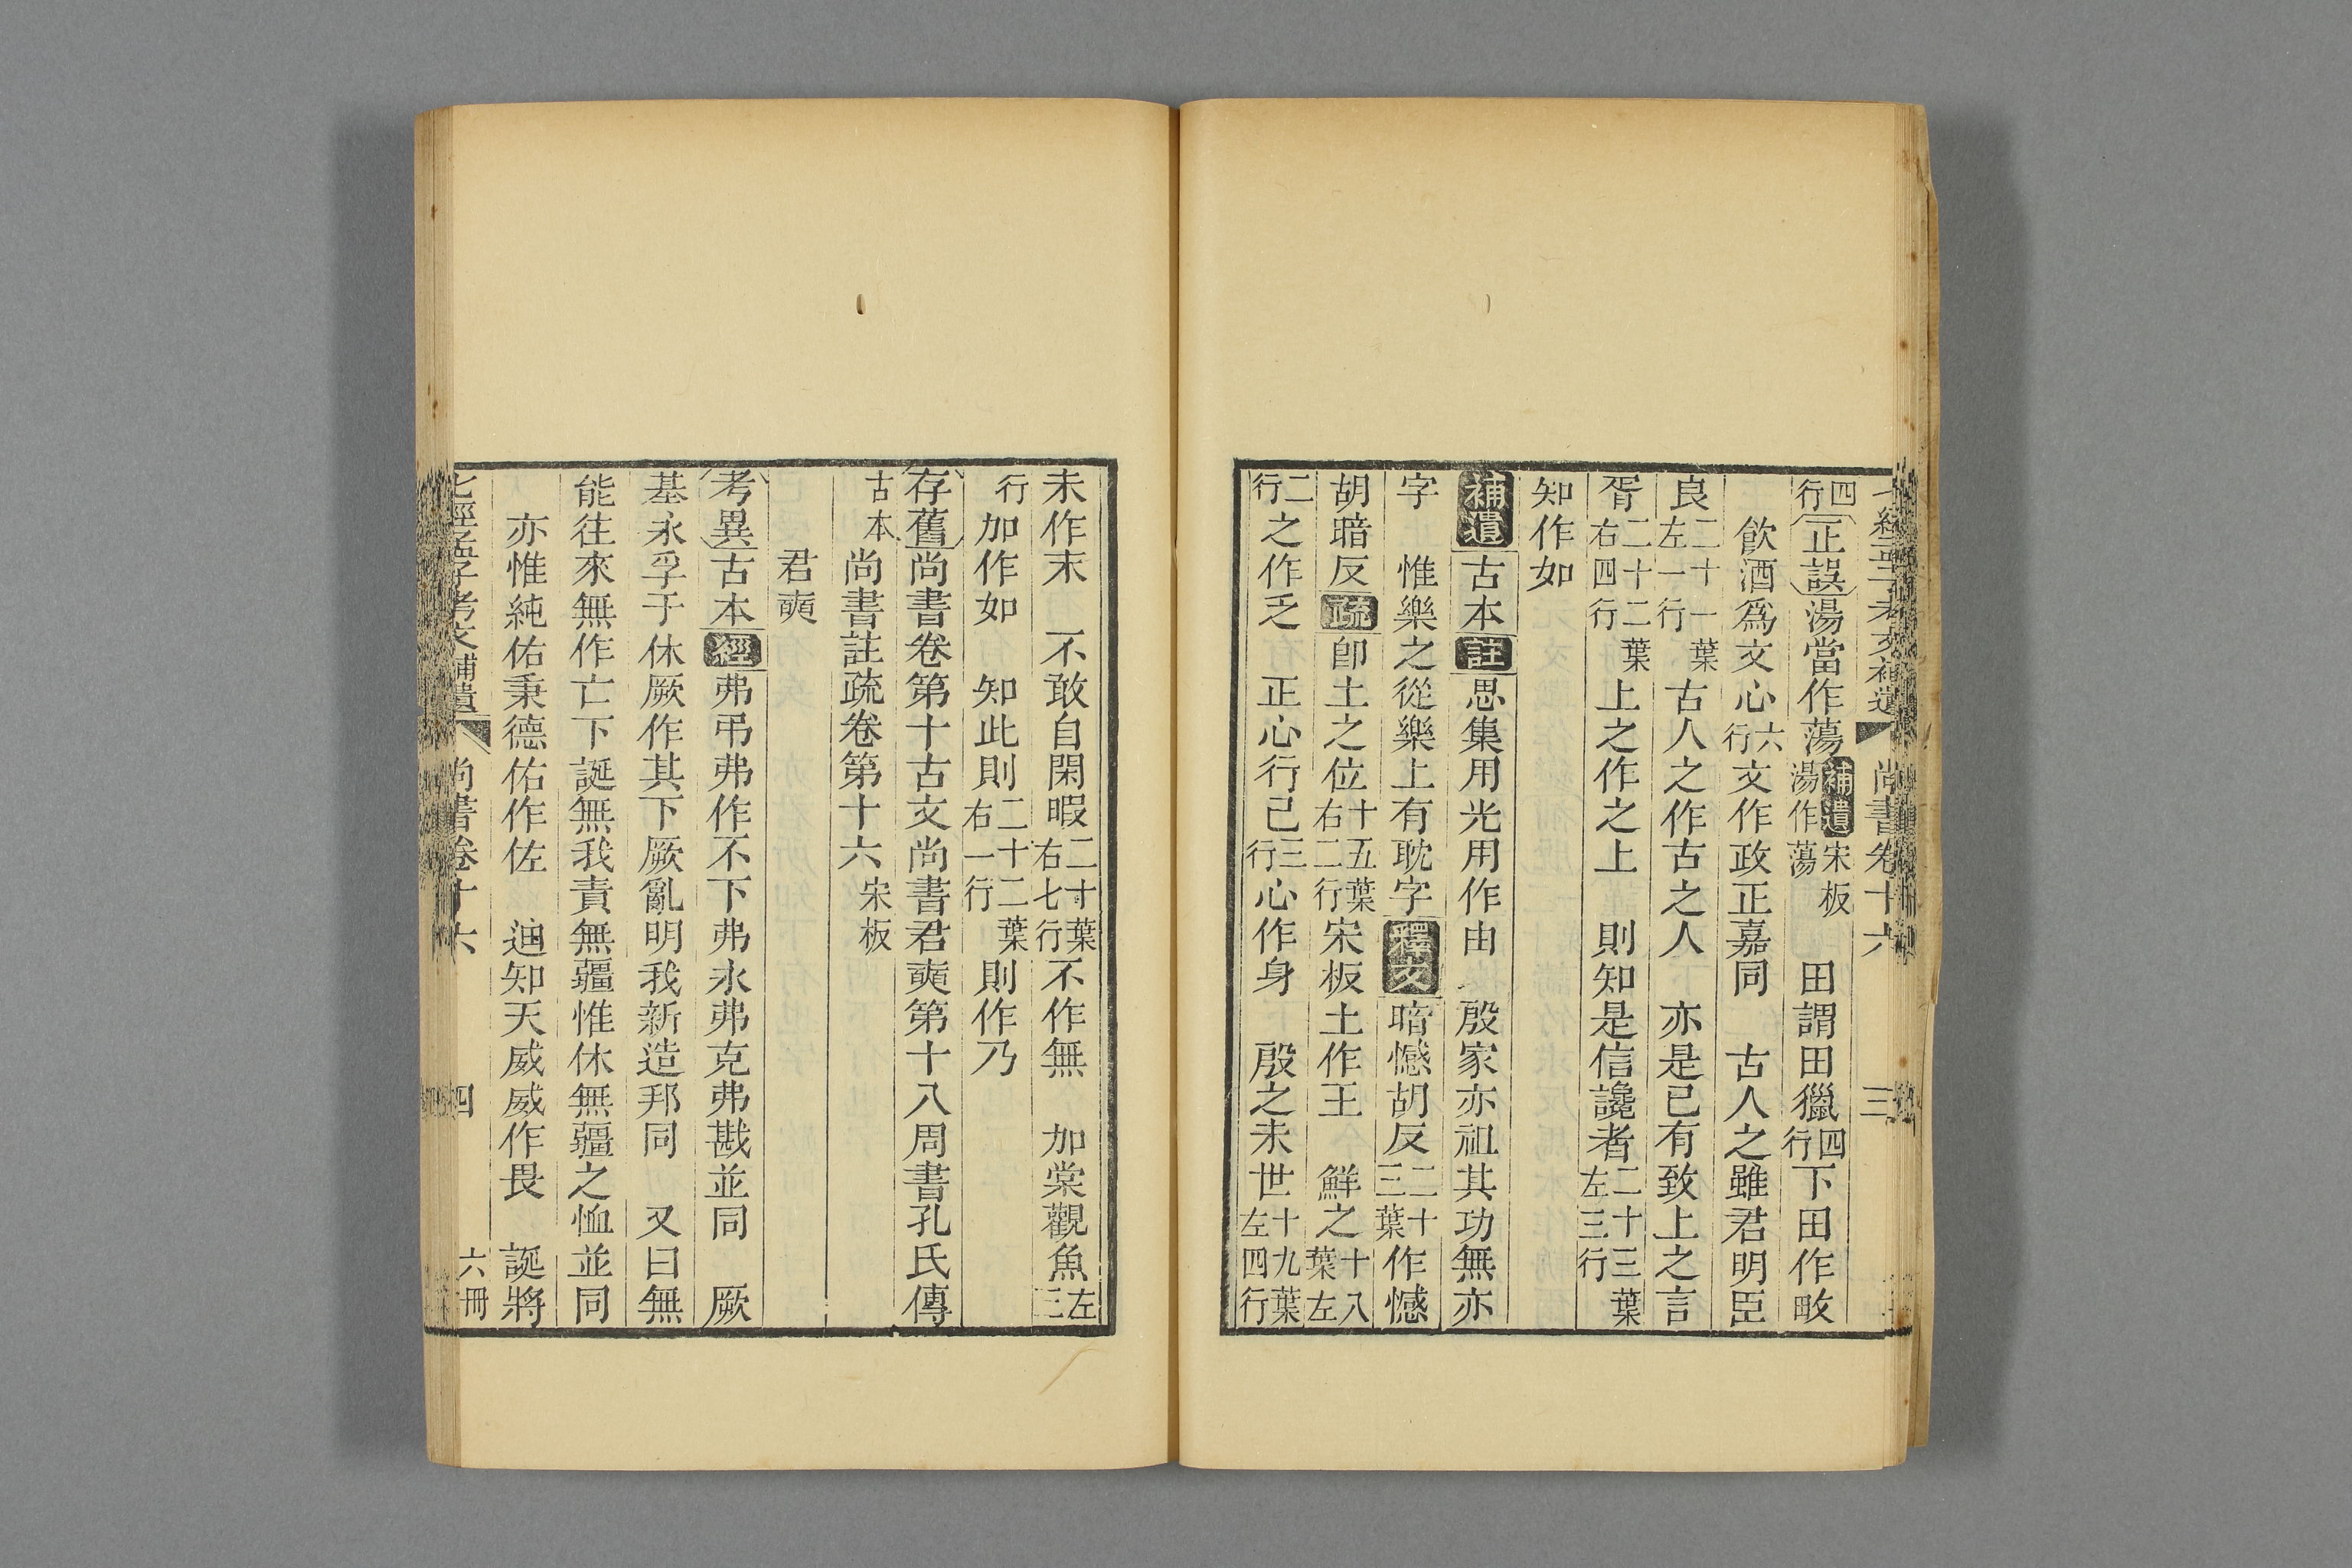 七經孟子考文補遺 尚書卷十六 三
四行正誤湯當作蕩補遺宋板湯作蕩 田謂田獵四行下田作畋
飮酒爲文心六行文作政正嘉同 古人之雖君明臣
良二十一葉左一行古人之作古之人 亦是已有致上之言
胥二十二葉右四行上之作之上 則知是信讒者二十三葉左三行
知作如
補遺古本註思集用光用作由 殷家亦祖其功無亦
字 惟樂之從樂上有耽字釋文暗憾胡反二十三葉作憾
胡暗反疏卽土之位十五葉右二行宋板土作王 鮮之十八葉左
二行之作乏 正心行己三行心作身 殷之未世十九葉左四行
未作末 不敢自閑暇二十葉右七行不作無 加棠觀魚左三
行加作如 知此則二十二葉右一行則作乃
存舊尚書卷第十古文尚書君奭第十八周書孔氏傳
古本尚書註疏卷第十六宋板
君奭
考異古本經弗弔弗作不下弗永弗克弗戡並同 厥
基永孚于休厥作其下厥亂明我新造邦同 又曰無
能往來無作亡下誕無我責無疆惟休無疆之恤並同
亦惟純佑秉德佑作佐 廸知天威威作畏 誕將
七經孟子考文補遺 尚書卷十六 四 六冊